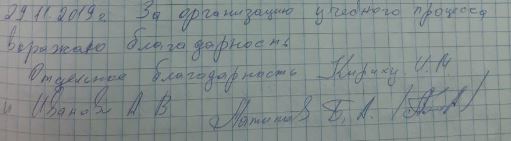 29.11.2019г. За организацию учебного процесса
выражаю благодарность
Отдельное благодарность Кириху И.М.
и Иванов А В Латипов Б. А.